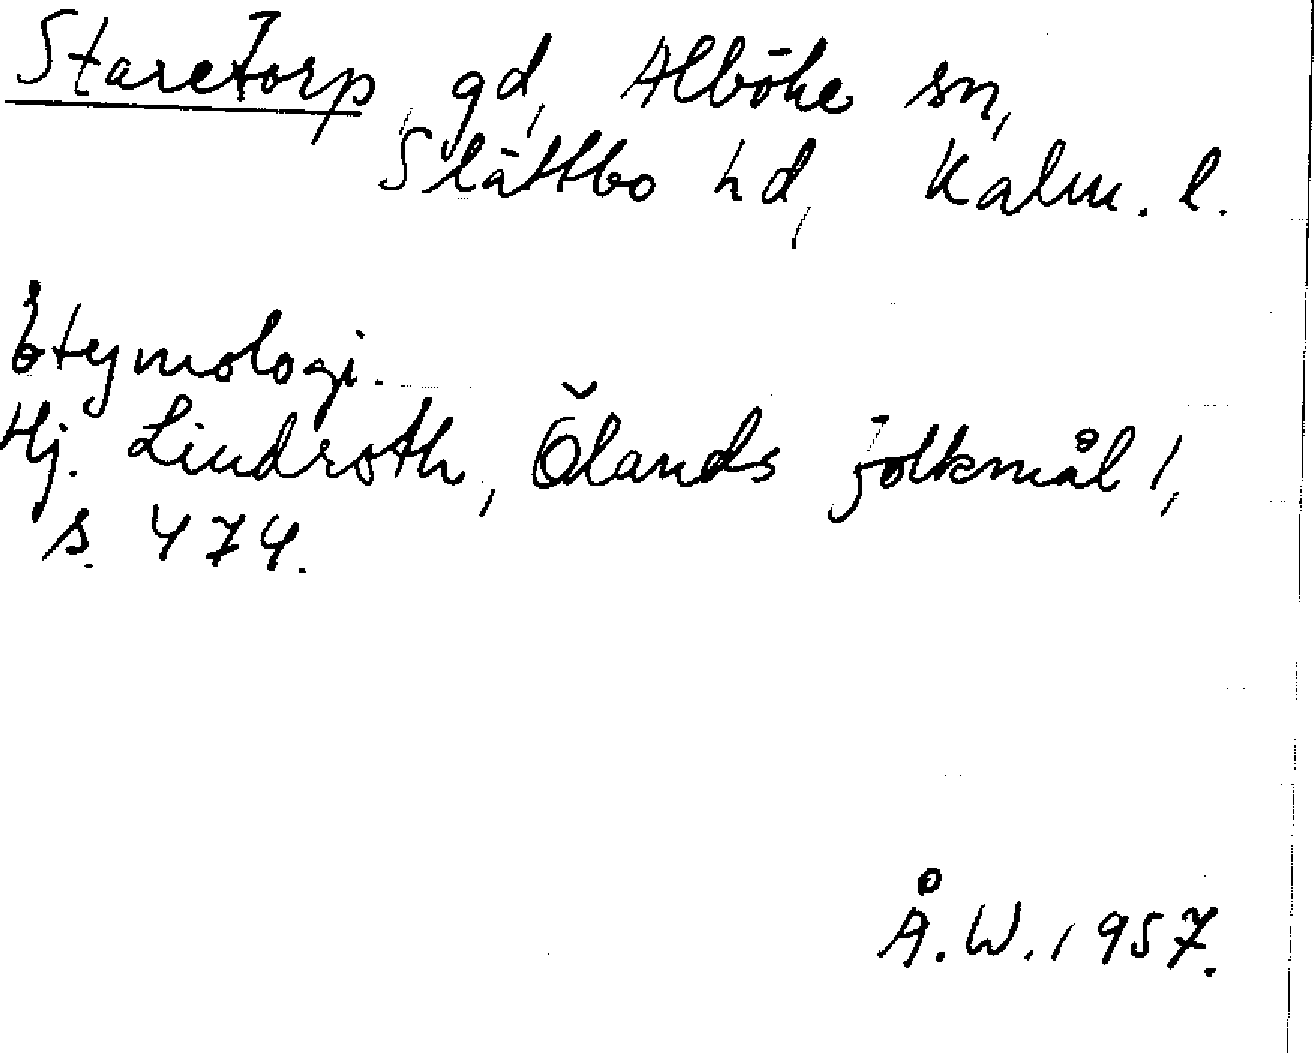 Staretorp, gd, Alböke sn,
Slättbo hd, Kalm. l.
Etymologi.
Hj. Lindroth, Ölands folkmål 1,
s. 474.
Å. W. 1957.